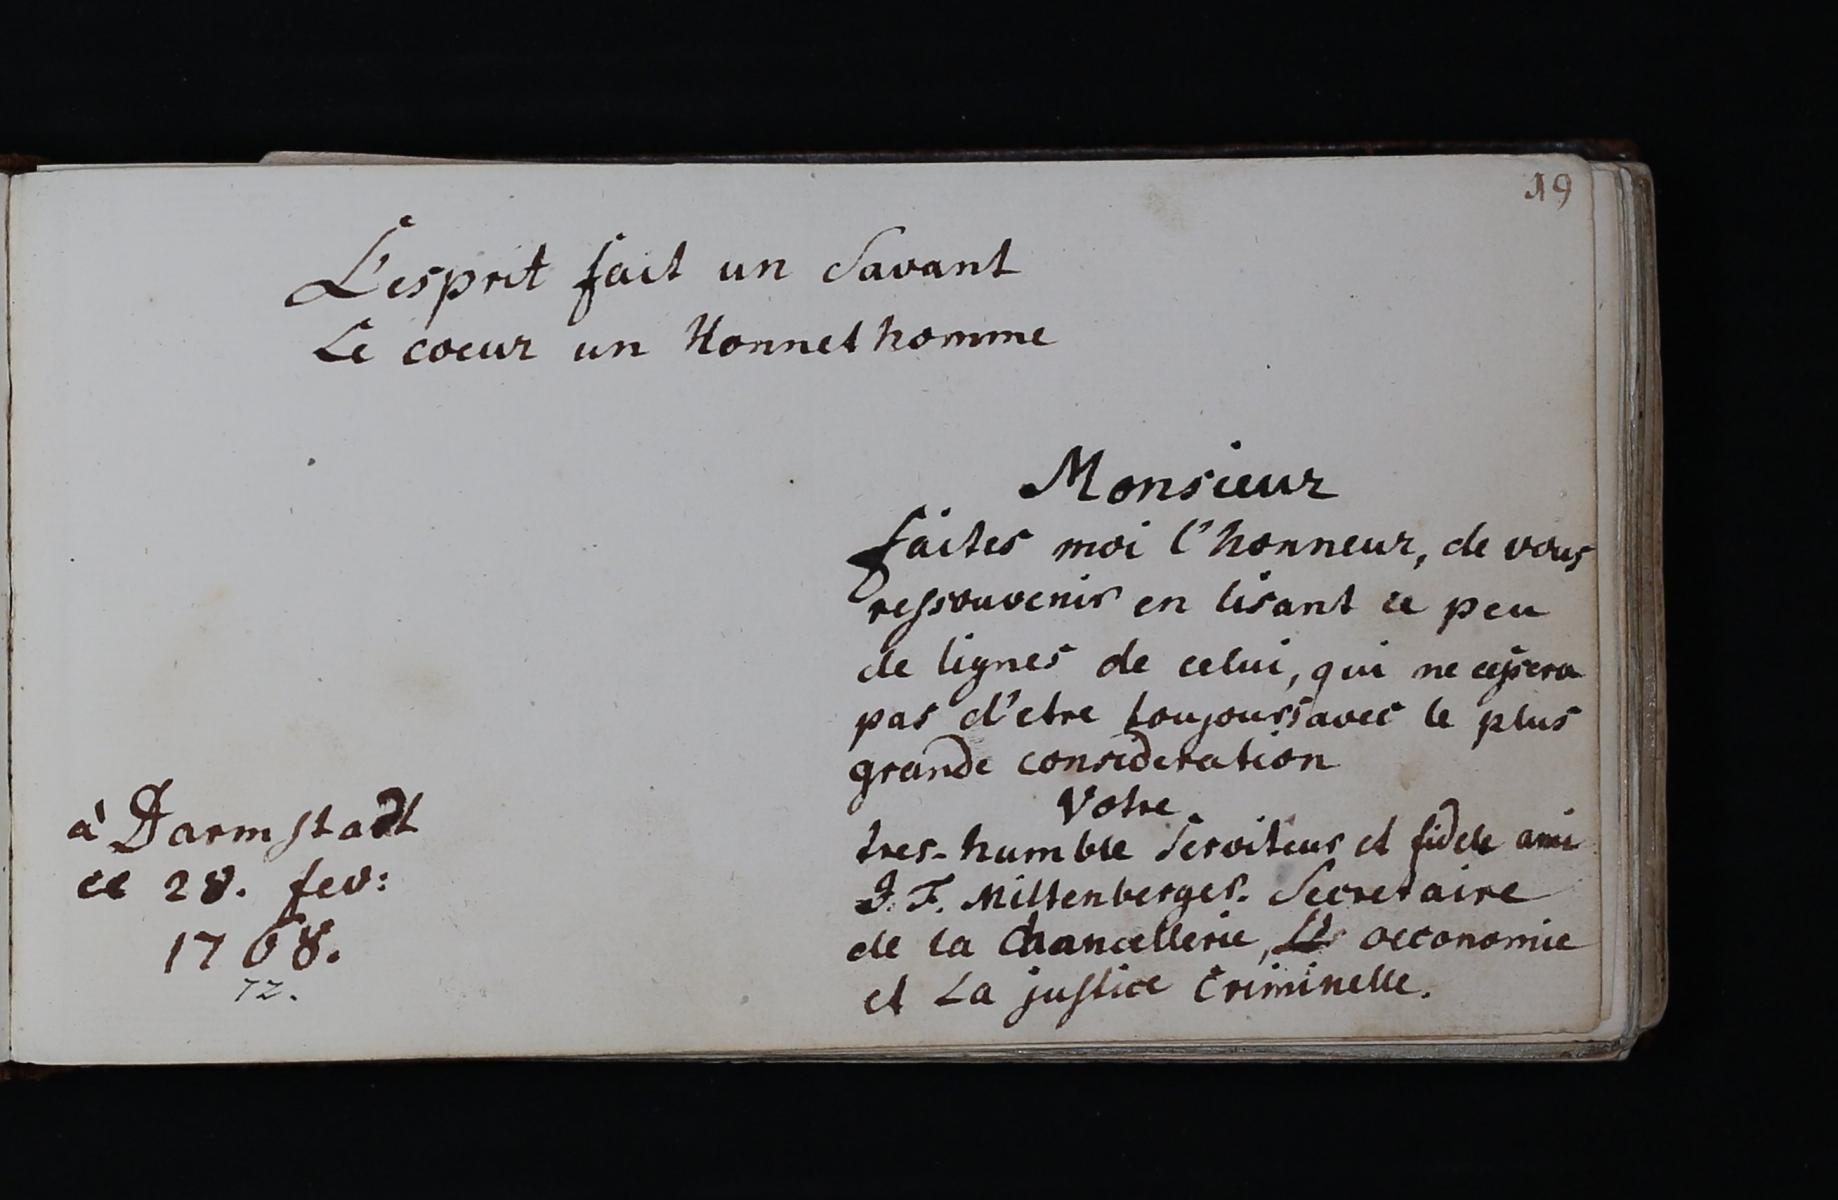 19
L'esprit fait un Savant
Le coeur un Honnethomme
Monsieur
faites moi l'honneur, de vous
ressouvenir en lisant ce peu
de lignes de celui, qui ne cessera
pas d'etre toujours avec le plus
grande consideration
Votre
tres-humble Serviteur et fidele ami
J. F. Miltenberger. Secretaire
de la Chancellerie, oeconomie
et La justice Criminelle.
à Darmstadt
ce 28. fev:
1768.
72.